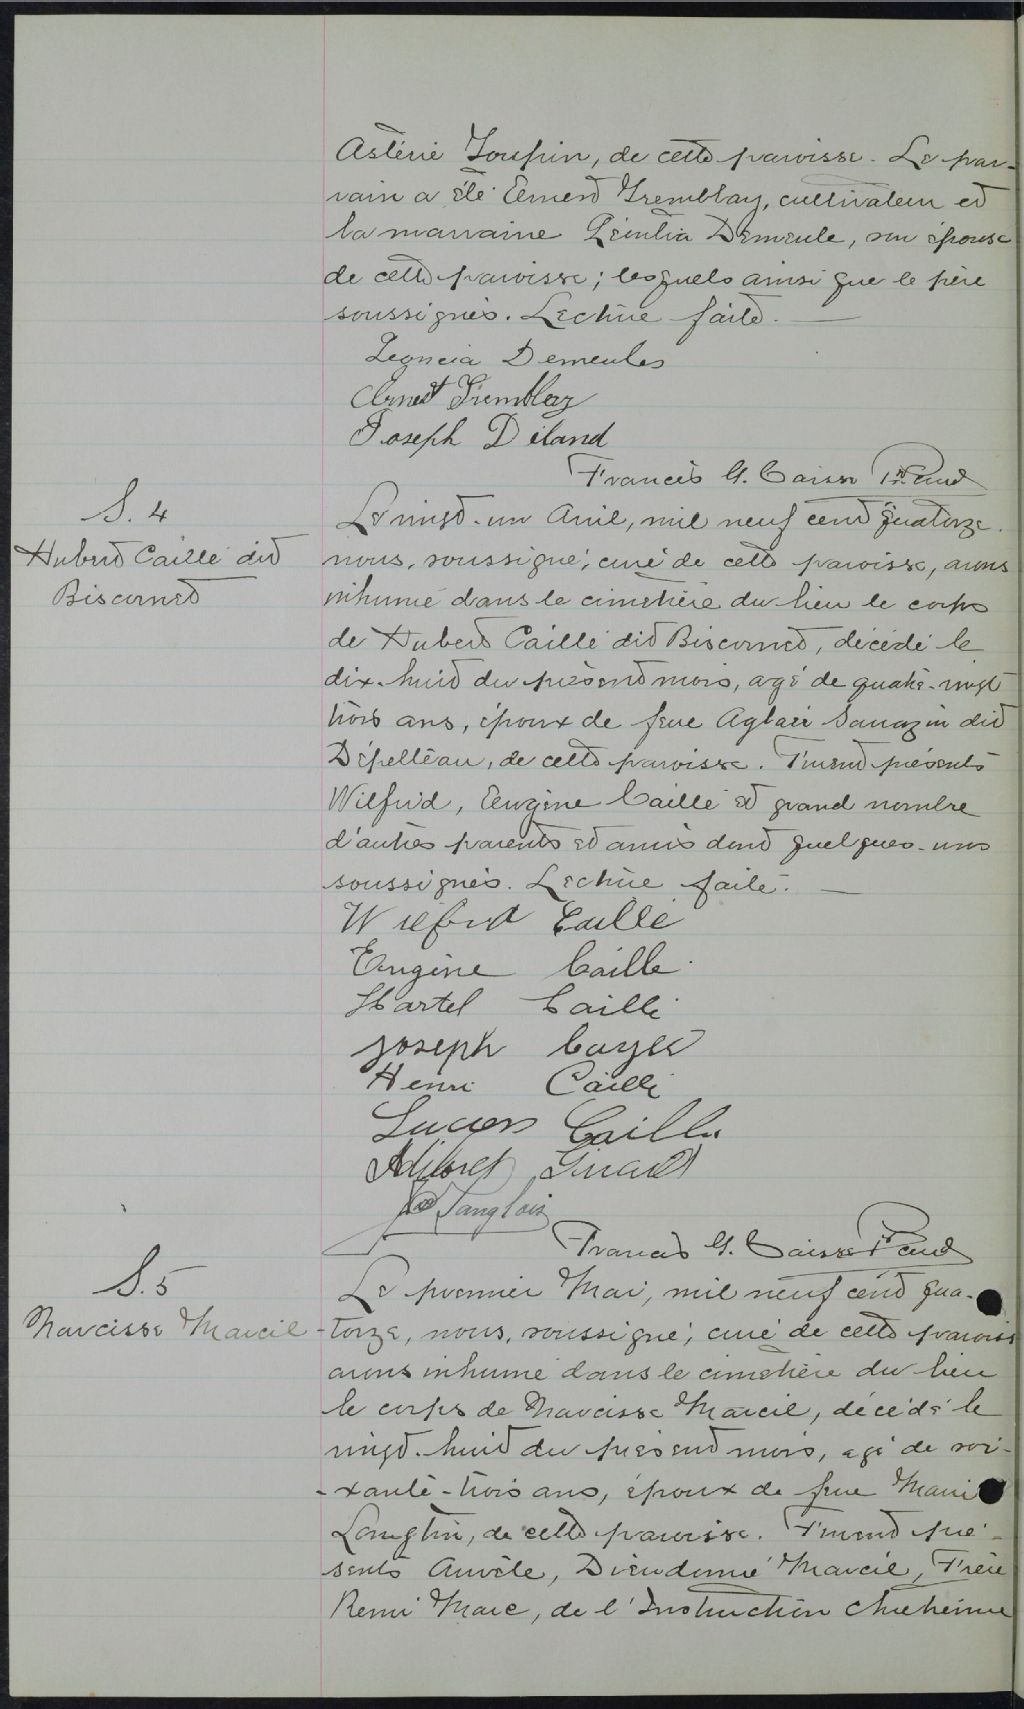 Astérie Toupin, de cette paroisse. Le par-
rain a été Ernest Tremblay, cultivateur et
la marraine Demeule, son épouse
de cette paroisse; lesquels ainsi que le père
soussignés. Lecture faite. —
Demeules
Ernest Tremblay
Joseph Diland
Francis G. Caisse Ptre Curé
S. 4
Hubert Caillé dit
Biscornet
Le vingt-un Avril, mil neuf cent quatorze
nous, soussigné, curé de cette paroisse, avons
inhumé dans le cimetière du lieu le corps
de Hubert Caillé dit Biscornet, décédé le
dix-huit du présent mois, agé de quatre-vingt
trois ans, époux de feue Aglaé Sarrazin dit
Dépelteau, de cette paroisse. Furent présents
Wilfrid, Eugène Caillé et grand nombre
d'autres parents et amis dont quelques-uns
soussignés. Lecture faite. —
Wilfrid Caillé
Eugène Caillé
Martel Caillé
Joseph Cayer
Henri Caillé
Lucien Caillé
Girard
Langlois
Francis G. Caisse Ptre Curé
S. 5
Narcisse Marcil
Le premier Mai, mil neuf cent qua-
-torze, nous, soussigné, curé de cette paroisse
avons inhumé dans le cimetière du lieu
le corps de Narcisse Marcil, décédé le
vingt-huit du présent mois, agé de soi-
-xante-trois ans, époux de feue Marie
Longtin, de cette paroisse. Furent pré-
sents Dieudonné Marcil, Frère
Remi Marc, de l'Instruction chrétienne